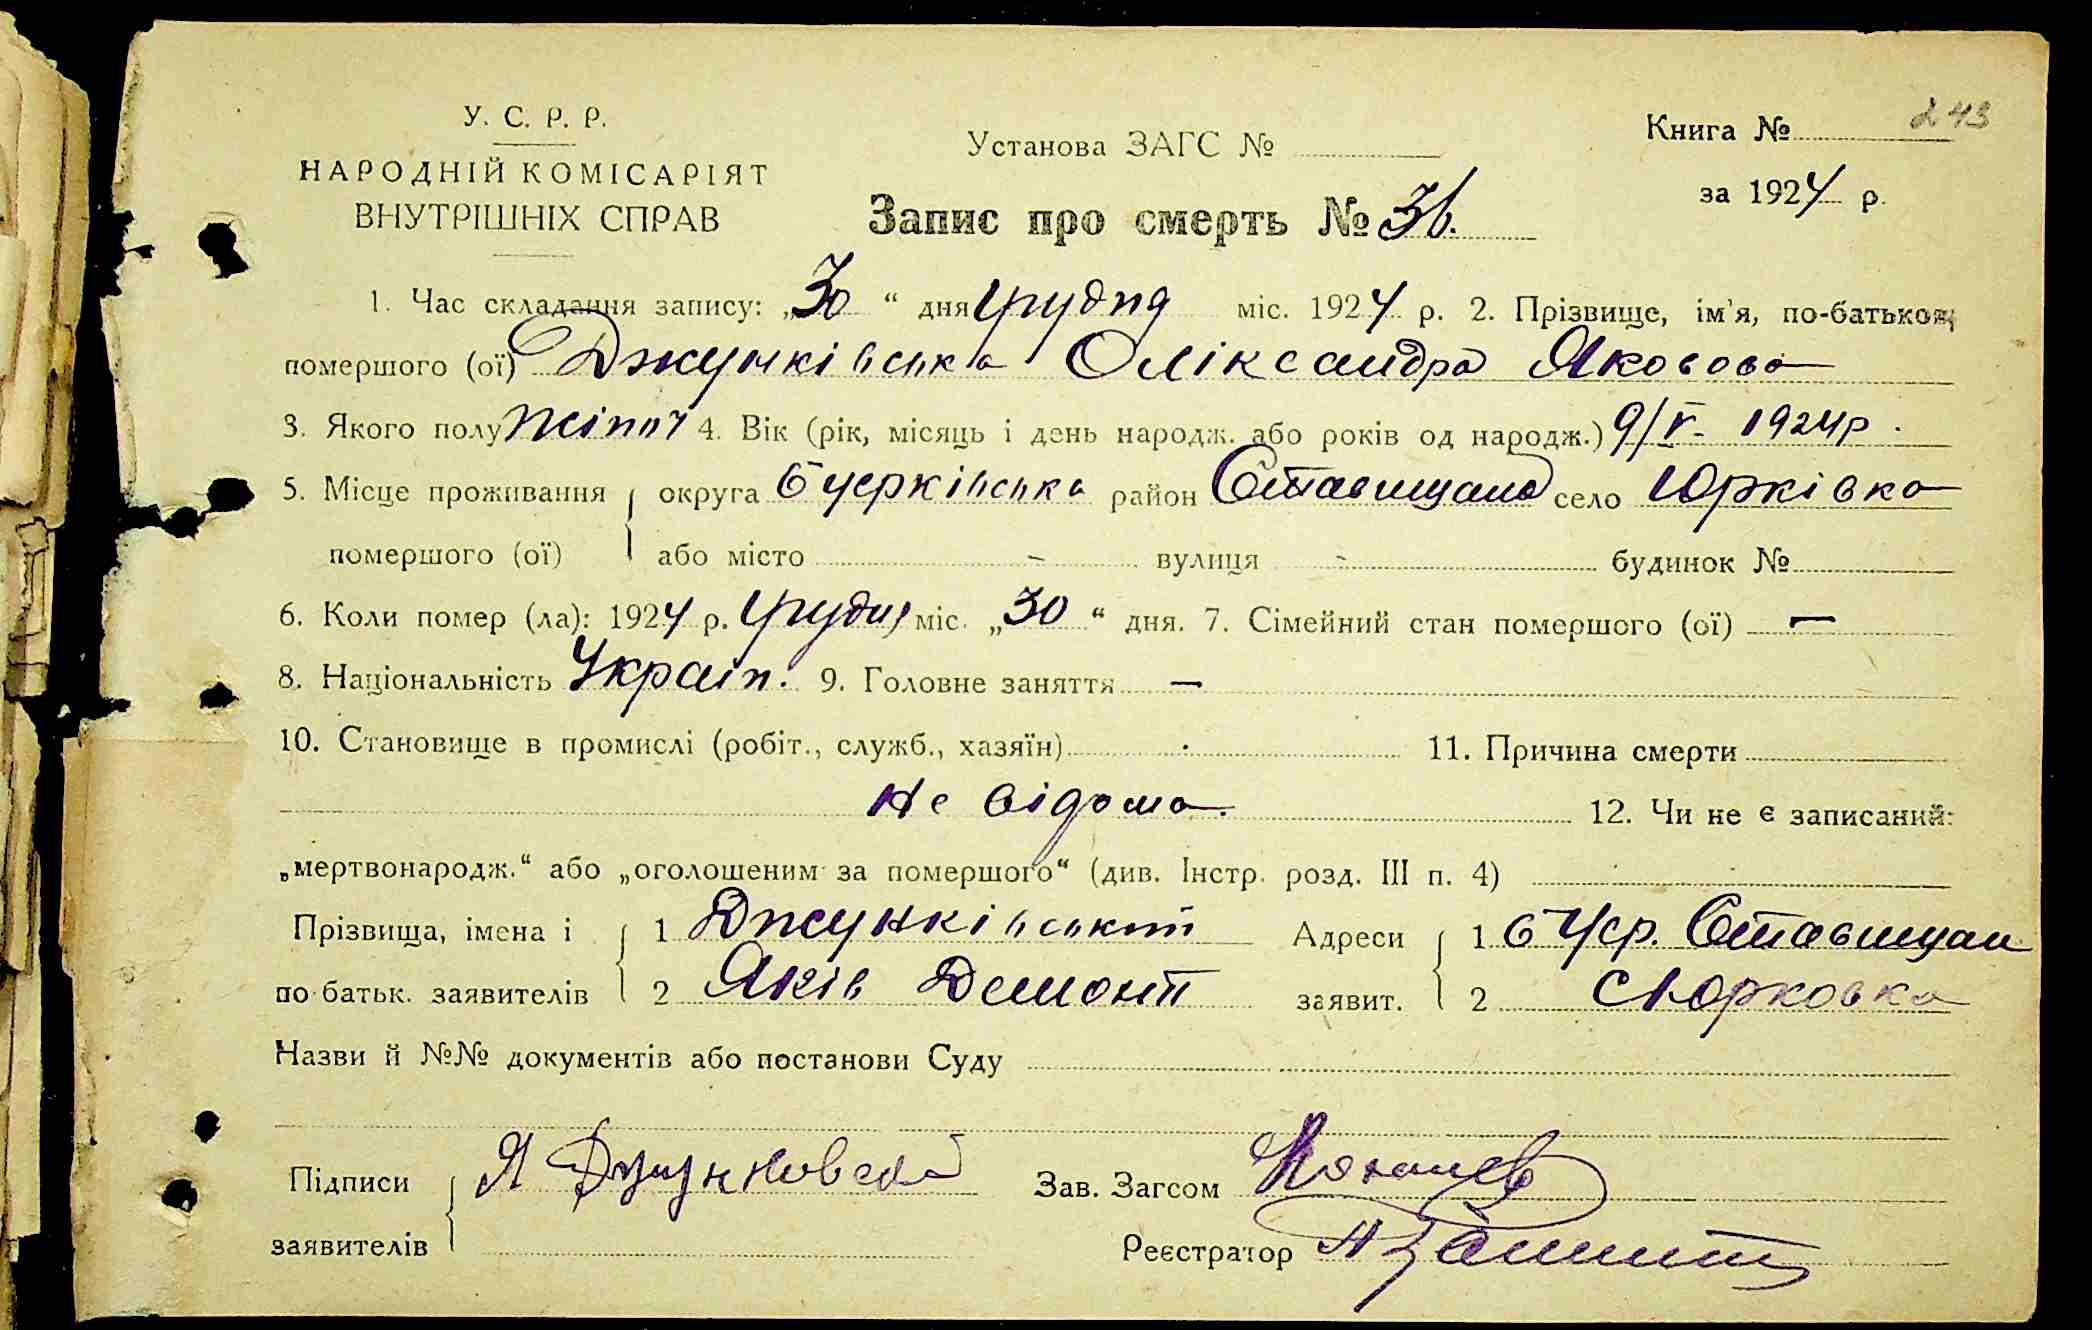 У. С. Р. Р.
НАРОДНІЙ КОМІСАРІЯТ
ВНУТРІШНІХ СПРАВ
Установа ЗАГС №
Книга № 243
за 1924 р.
Запис про смерть № 36.
1. Час складання запису: „30“ дня грудня міс. 1924 р. 2. Прізвище, ім'я, по-батькові
помершого (ої) Джунківська Оліксандра Яковова
3. Якого полу жіноч 4. Вік (рік, місяць і день народж. або років од народж.) 9/V- 1924р.
5. Місце проживання округа Бцерківська район Ставищан село Юрківка
помершого (ої) або місто - вулиця - будинок №
6. Коли помер (ла): 1924 р. Грудня міс. „30“ дня. 7. Сімейний стан помершого (ої) —
8. Національність Україн. 9. Головне заняття —
10. Становище в промислі (робіт., служб., хазяїн) 11. Причина смерти
не відома. 12. Чи не є записаний:
„мертвонародж.“ або „оголошеним за помершого“ (див. Інстр. розд. III п. 4)
Прізвища, імена і 1 Джунківський Адреси 1 БЦер. Ставищан
по-батьк. заявителів 2 Яків Демонт заявит. 2 с Юрковка
Назви й №№ документів або постанови Суду
Підписи Я Дзунковскй Зав. Загсом
заявителів Реєстратор